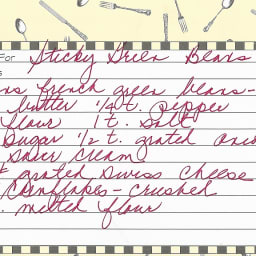 For Sticky Green Beans
s
ns french green beans-
butter ¼ t. pepper
flour 1 t. salt
Sugar ½ t. grated onio
sour cream
t grated swiss cheese
Cornflakes - crushed
. melted flour